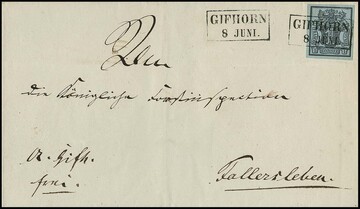 GIFHORN
8 JUNI.
GIFHORN
8 JUNI.
An
die Königliche Forstinspection
Fallersleben.
frei.